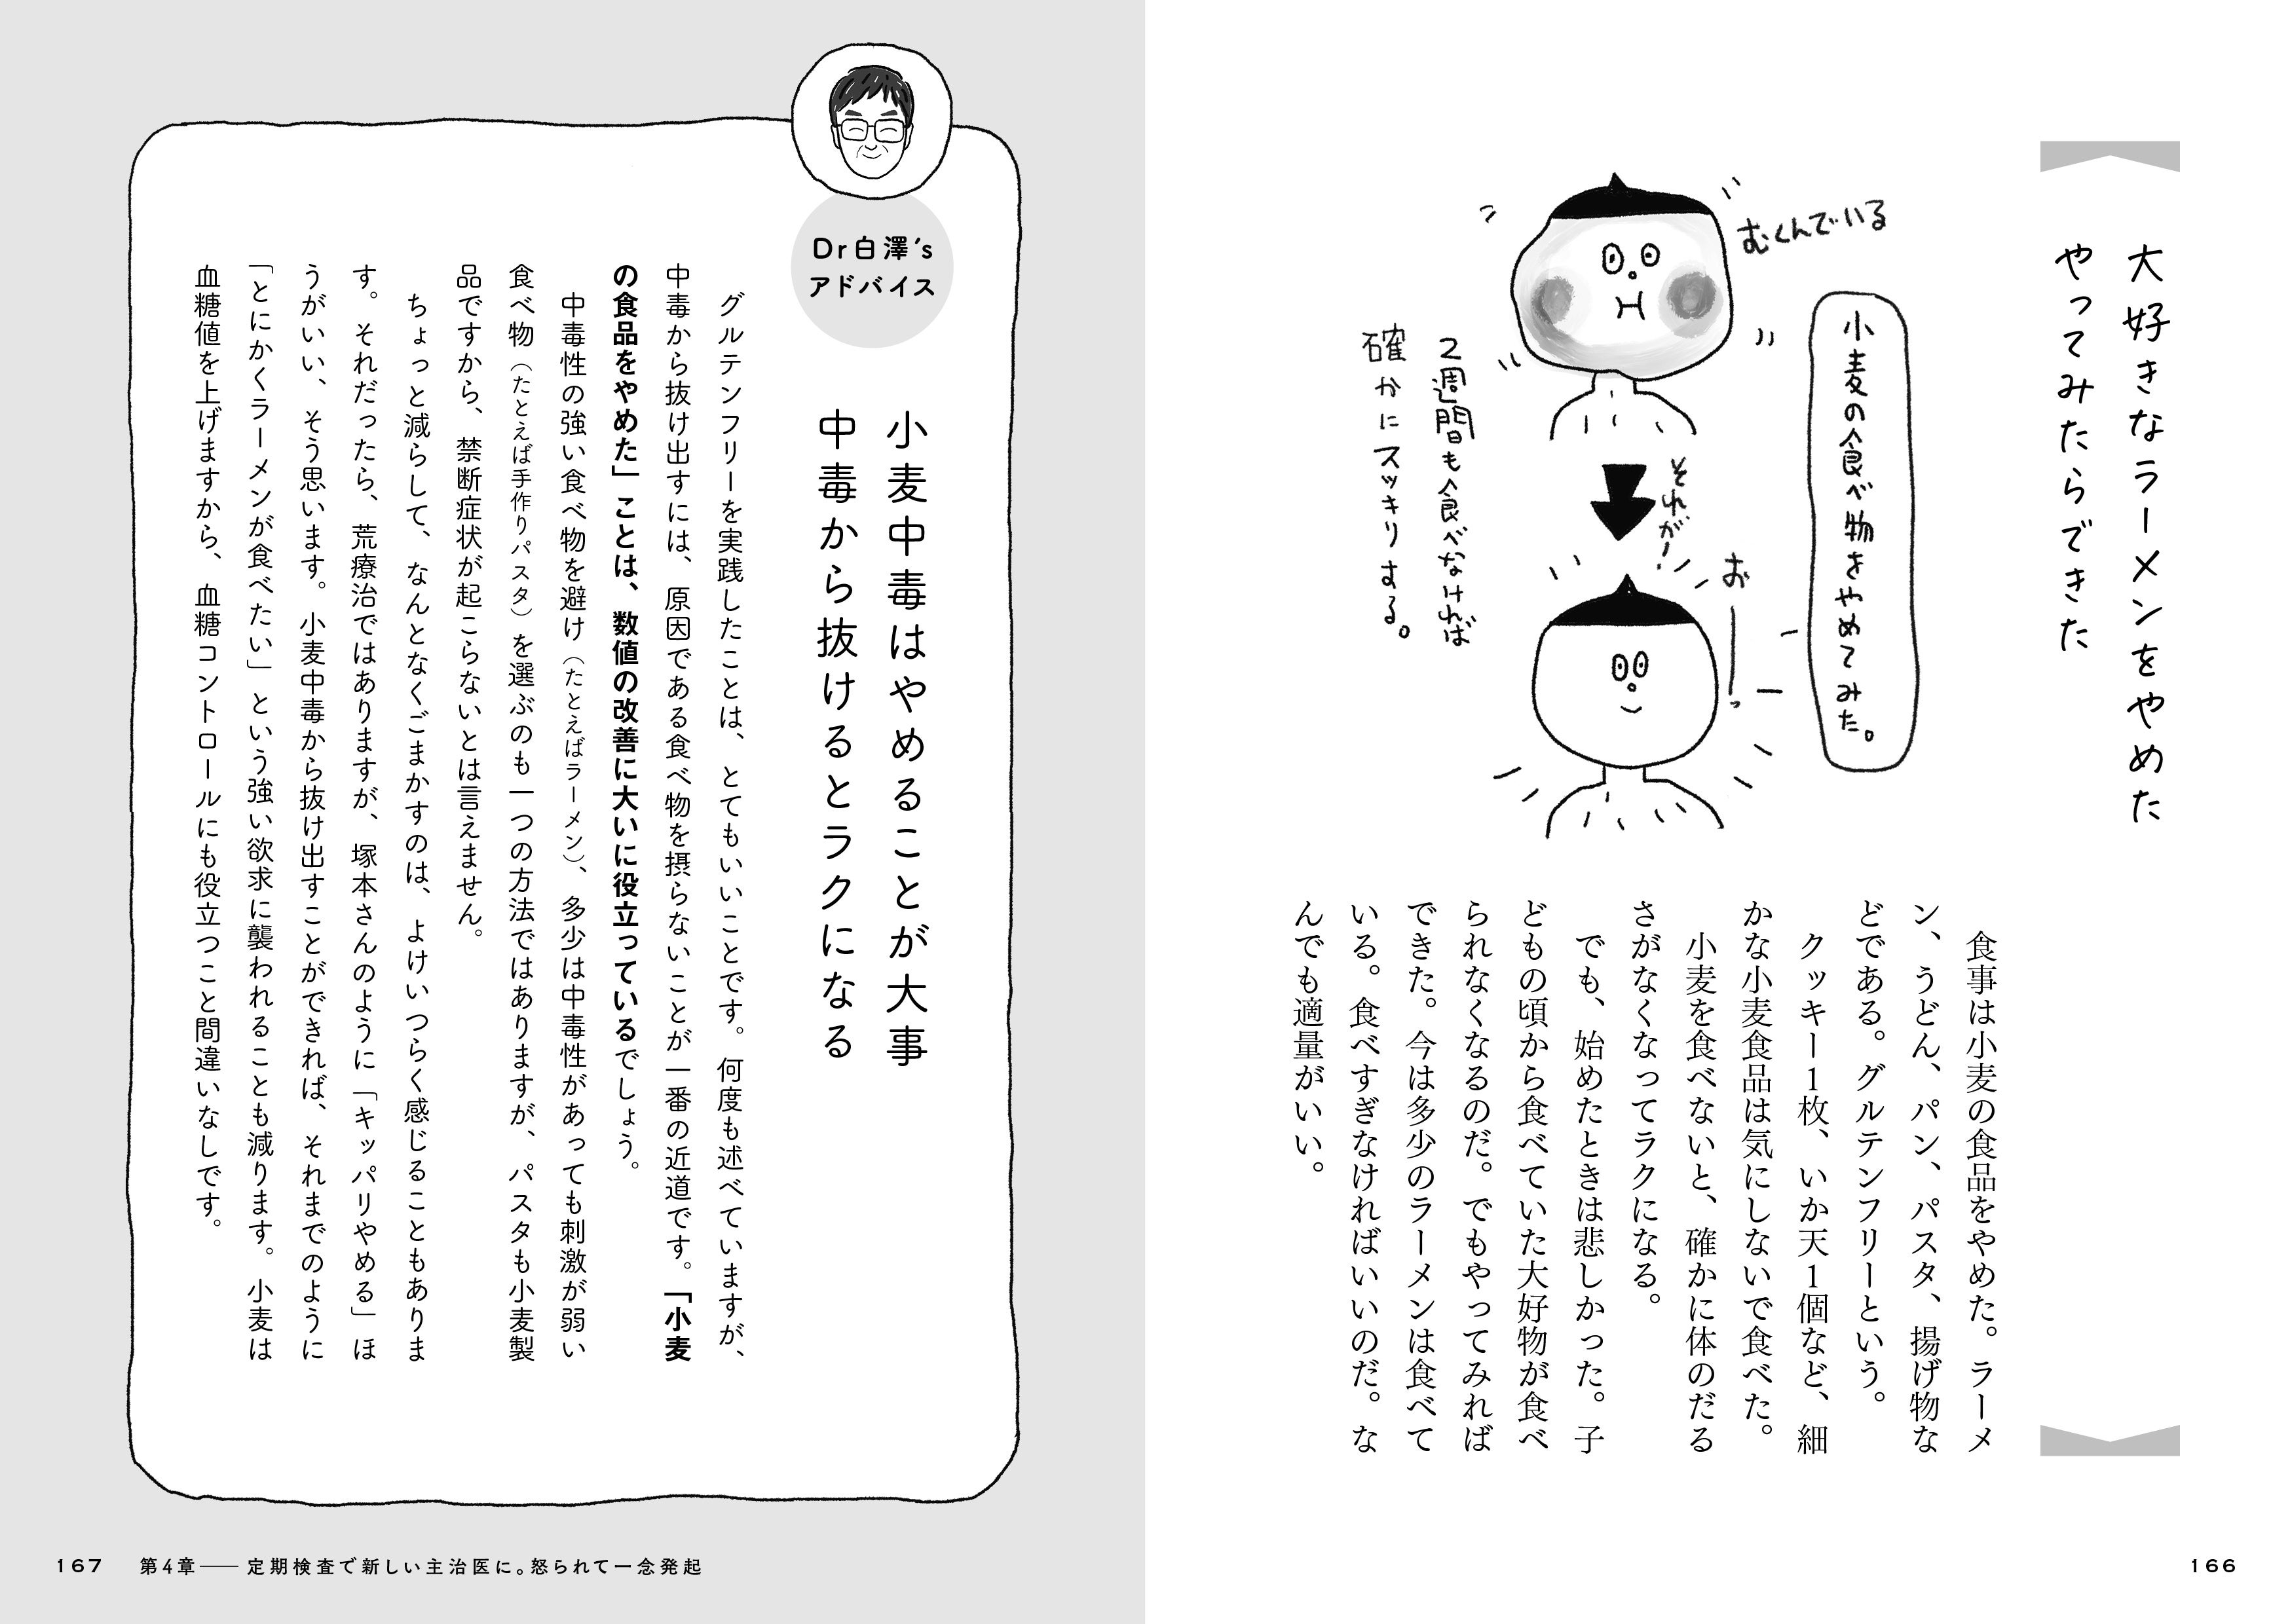 大好きなラーメンをやめた
やってみたらできた
むくんでいる
小麦の食べ物をやめてみた。
それが！
お───っ
２週間も食べなければ
確かにスッキリする。
食事は小麦の食品をやめた。ラーメ
ン、うどん、パン、パスタ、揚げ物な
どである。グルテンフリーという。
クッキー1枚、いか天1個など、細
かな小麦食品は気にしないで食べた。
小麦を食べないと、確かに体のだる
さがなくなってラクになる。
でも、始めたときは悲しかった。子
どもの頃から食べていた大好物が食べ
られなくなるのだ。でもやってみれば
できた。今は多少のラーメンは食べて
いる。食べすぎなければいいのだ。な
んでも適量がいい。
166
Dr白澤’s
アドバイス
小麦中毒はやめることが大事
中毒から抜けるとラクになる
グルテンフリーを実践したことは、とてもいいことです。何度も述べていますが、
中毒から抜け出すには、原因である食べ物を摂らないことが一番の近道です。「小麦
の食品をやめた」ことは、数値の改善に大いに役立っているでしょう。
中毒性の強い食べ物を避け（たとえばラーメン）、多少は中毒性があっても刺激が弱い
食べ物（たとえば手作りパスタ）を選ぶのも一つの方法ではありますが、パスタも小麦製
品ですから、禁断症状が起こらないとは言えません。
ちょっと減らして、なんとなくごまかすのは、よけいつらく感じることもありま
す。それだったら、荒療治ではありますが、塚本さんのように「キッパリやめる」ほ
うがいい、そう思います。小麦中毒から抜け出すことができれば、それまでのように
「とにかくラーメンが食べたい」という強い欲求に襲われることも減ります。小麦は
血糖値を上げますから、血糖コントロールにも役立つこと間違いなしです。
167 第4章── 定期検査で新しい主治医に。怒られて一念発起